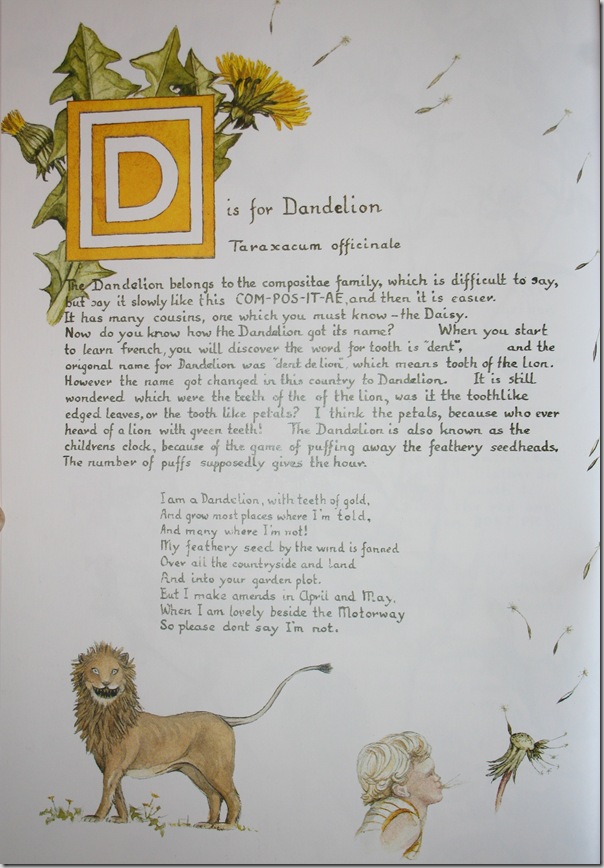 D
is for Dandelion
Taraxacum officinale
The Dandelion belongs to the compositae family, which is difficult to say,
but say it slowly like this COM-POS-IT-AE, and then it is easier.
It has many cousins, one which you must know - the Daisy.
Now do you know how the Dandelion got its name? When you start
to learn french, you will discover the word for tooth is "dent", and the
origonal name for Dandelion was "dent de lion", which means tooth of the lion.
However the name got changed in this country to Dandelion. It is still
wondered which were the teeth of the of the lion, was it the toothlike
edged leaves, or the tooth like petals? I think the petals, because who ever
heard of a lion with green teeth! The Dandelion is also known as the
childrens clock, because of the game of puffing away the feathery seedheads.
The number of puffs supposedly gives the hour.
I am a Dandelion, with teeth of gold,
And grow most places where I'm told,
And many where I'm not!
My feathery seed by the wind is fanned
Over all the countryside and land
And into your garden plot.
But I make amends in April and May,
When I am lovely beside the Motorway
So please dont say I'm not.